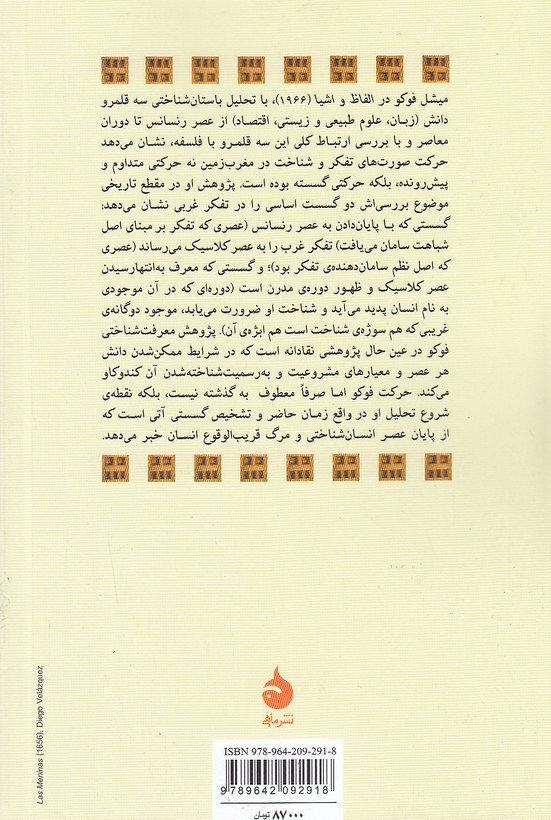 میشل فوکو در الفاظ و اشیا (۱۹۶۶)، با تحلیل باستان‌شناختی سه قلمرو
دانش (زبان، علوم طبیعی و زیستی، اقتصاد) از عصر رنسانس تا دوران
معاصر و با بررسی ارتباط کلی این سه قلمرو با فلسفه، نشان می‌دهد
حرکت صورت‌های تفکر و شناخت در مغرب‌زمین نه حرکتی متداوم و
پیش‌رونده، بلکه حرکتی گسسته بوده است. پژوهش او در مقطع تاریخی
موضوع بررسی‌اش دو گسست اساسی را در تفکر غربی نشان می‌دهد:
گسستی که با پایان‌دادن به عصر رنسانس (عصری که تفکر بر مبنای اصل
شباهت سامان می‌یافت) تفکر غرب را به عصر کلاسیک می‌رساند (عصری
که اصل نظم سامان‌دهنده‌ی تفکر بود)؛ و گسستی که معرف به‌انتهارسیدن
عصر کلاسیک و ظهور دوره‌ی مدرن است (دوره‌ای که در آن موجودی
به نام انسان پدید می‌آید و شناخت او ضرورت می‌یابد، موجود دوگانه‌ی
غریبی که هم سوژه‌ی شناخت است هم ابژه‌ی آن). پژوهش معرفت‌شناختی
فوکو در عین حال پژوهشی نقادانه است که در شرایط ممکن‌شدن دانش
هر عصر و معیارهای مشروعیت و به‌رسمیت‌شناخته‌شدن آن کندوکاو
می‌کند. حرکت فوکو اما صرفاً معطوف به گذشته نیست، بلکه نقطه‌ی
شروع تحلیل او در واقع زمان حاضر و تشخیص گسستی آتی است که
از پایان عصر انسان‌شناختی و مرگ قریب‌الوقوع انسان خبر می‌دهد.
Las Meninas (1656), Diego Velázquez
نشرماهی
ISBN 978-964-209-291-8
9 789642 092918
۸۷۰۰۰ تومان